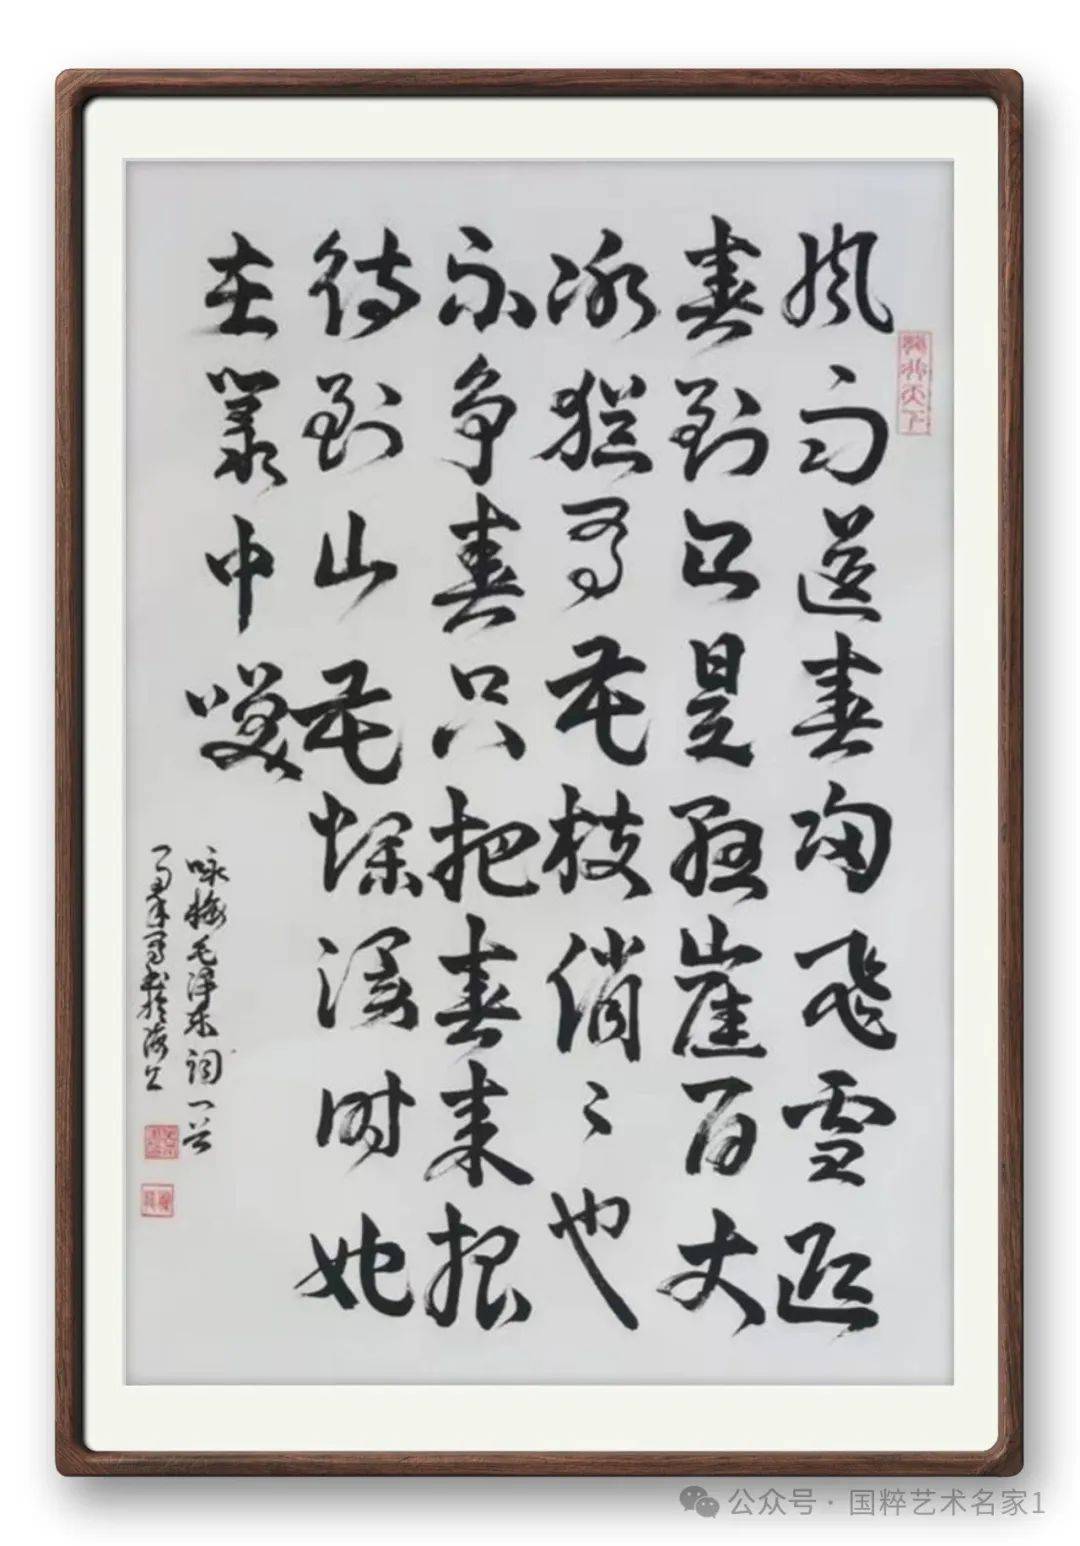 風雨送春归飛雪迎
春到已是悬崖百丈
冰犹有花枝俏〻也
不争春只把春来报
待到山花烂漫时她
在叢中咲
咏梅毛泽东词一首
书於海上
公众号 · 国粹艺术名家1